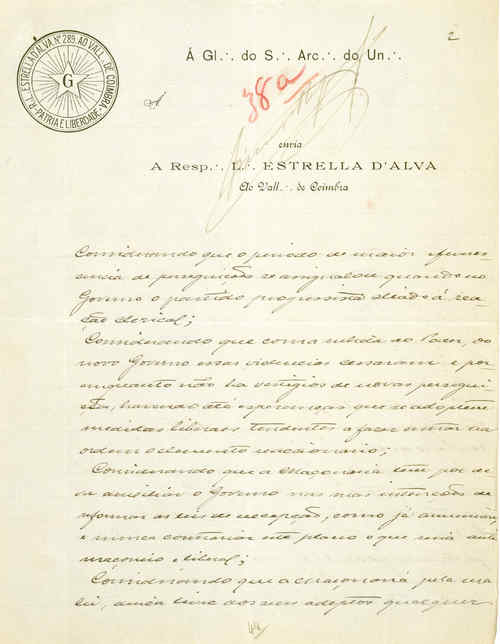 R∴ L∴ ESTRELLA D'ALVA Nº 289, AO VALL∴ DE COIMBRA
PATRIA E LIBERDADE
G
2
Á Gl∴ do S∴ Arc∴ do Un∴
38a
A
envia
A Resp∴ L∴ ESTRELLA D'ALVA
Ao Vall∴ de Coimbra
Considerando que o periodo de maior
de perseguições se assignalou quando no
Governo o partido progressista alliado á reac-
ção clerical;
Considerando que com a subida ao Poder, do
novo Governo essas violencias cessaram e por-
emquanto não ha vestigios de novas persegui-
ções, havendo até esperanças que se adoptem
medidas liberaes tendentes a fazer entrar na
ordem o elemento reaccionario;
Considerando que a Maçonaria tem por de-
ver auxiliar o Governo nas suas intenções de
reformar as leis de excepção, como já annunciou
e nunca contrariar este plano o que seria anti
maçonico e liberal;
Considerando que a Maçonaria pela sua
lei, deixa livre aos seus adeptos qualquer